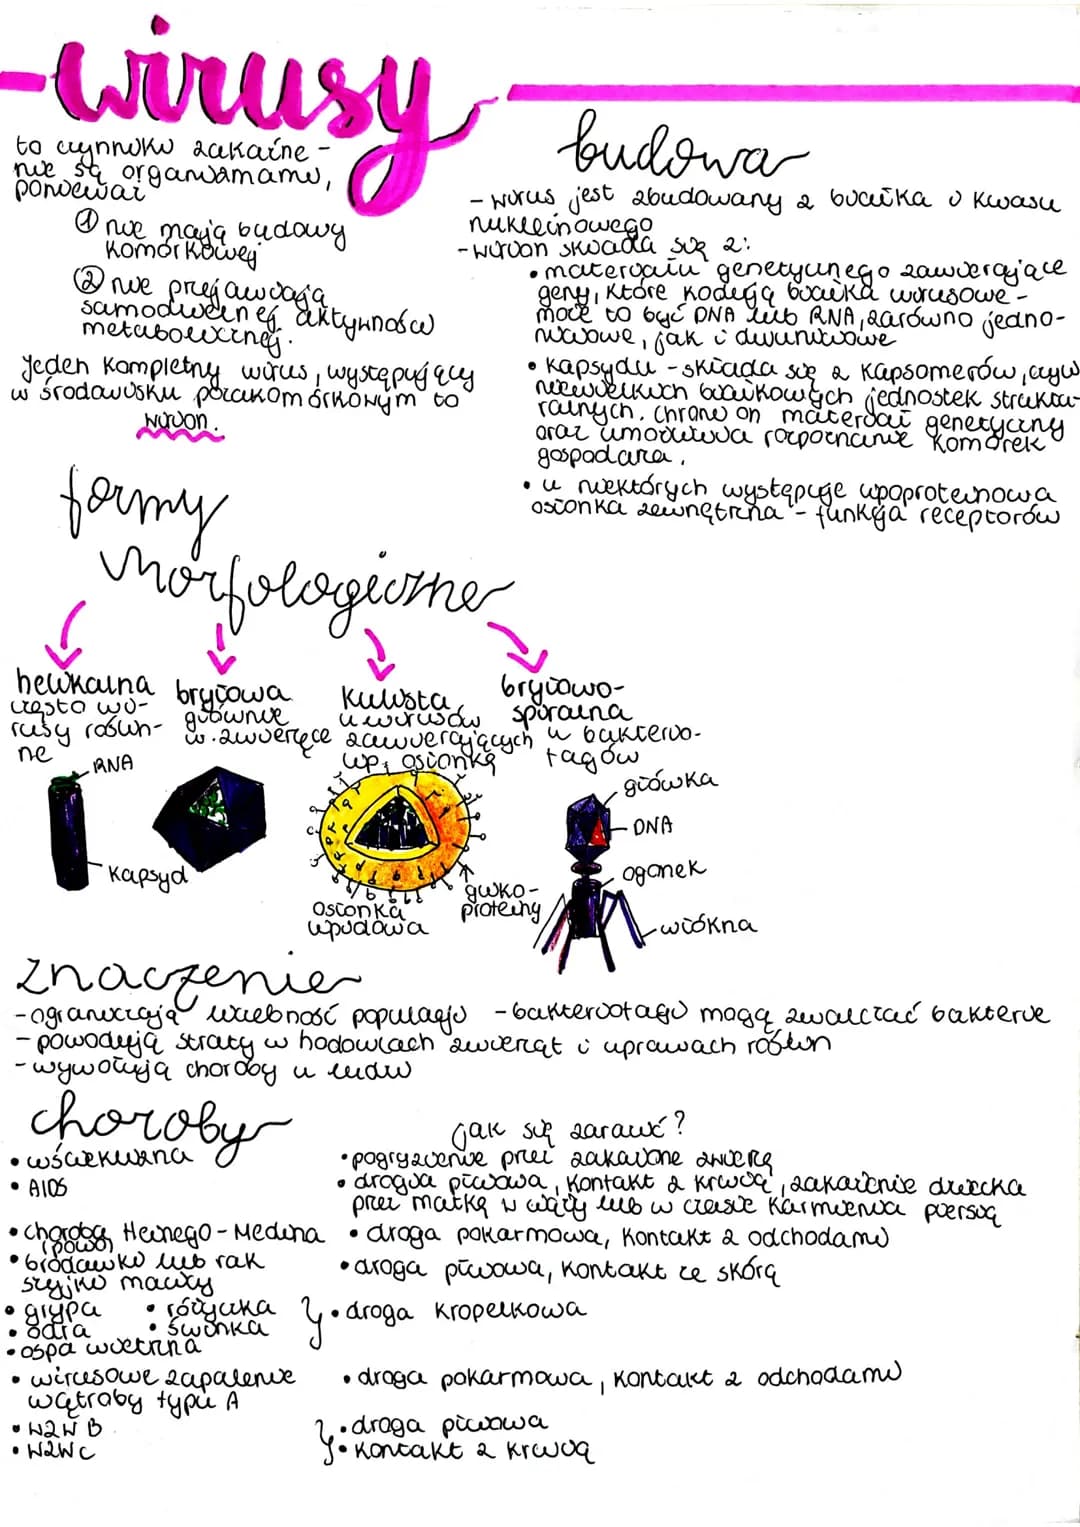 -wirusy
to czynniki zakaźne -
nie są organizmami,
ponieważ
① nie mają budowy
komórkowej
② nie przejawiają
samodzielnej aktywności
metabolicznej.
Jeden kompletny wirus, występujący
w środowisku pozakomórkowym to
wirion.
budowa
- wirus jest zbudowany z białka i kwasu
nukleinowego
- wirion składa się z:
• materiału genetycznego zawierające
geny, które kodują białka wirusowe -
może to być DNA lub RNA, zarówno jedno-
niciowe, jak i dwuniciowe
• kapsydu - składa się z kapsomerów, czyli
niewielkich białkowych jednostek struktu-
ralnych. Chroni on materiał genetyczny
oraz umożliwia rozpoznanie komórek
gospodarza.
• u niektórych występuje lipoproteinowa
osłonka zewnętrzna - funkcja receptorów
formy
morfologiczne
helikalna
często wi-
rusy roślin-
ne
RNA
kapsyd
bryłowa
głównie
w. zwierzęce
kulista
u wirusów
zawierających
lip. osłonkę
osłonka
lipidowa
gliko-
proteiny
bryłowo-
spiralna
u bakterio-
fagów
główka
DNA
ogonek
włókna
znaczenie
- ograniczają liczebność populacji - bakteriofagi mogą zwalczać bakterie
- powodują straty w hodowlach zwierząt i uprawach roślin
- wywołują choroby u ludzi
choroby
jak się zarazić?
• wścieklizna
• pogryzienie przez zakażone zwierzę
• AIDS
• drogia płciowa, kontakt z krwią, zakażenie dziecka
przez matkę w ciąży lub w czasie karmienia piersią
• choroba Heinego-Medina
(polio)
• droga pokarmowa, kontakt z odchodami
• brodawki lub rak
szyjki macicy
• droga płciowa, kontakt ze skórą
• grypa • różyczka
• odra • świnka
• ospa wietrzna
• droga kropelkowa
• wirusowe zapalenie
wątroby typu A
• droga pokarmowa, kontakt z odchodami
• WZW B
• WZW C
• droga płciowa
• kontakt z krwią